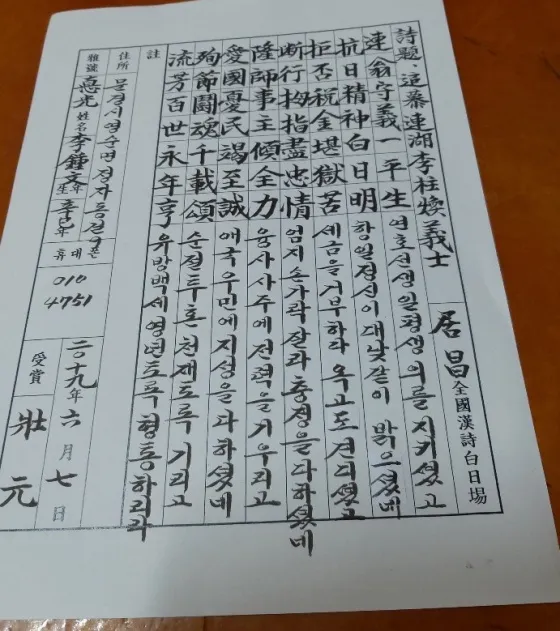 詩題:追慕連湖李柱煥義士
居昌全國漢詩白日場
連翁守義一平生 연호선생 일평생 의를 지키셨고
抗日精神白日明 항일정신이 대낮같이 밝으셨네
拒否稅金堪獄苦 세금을 거부하다 옥고도 견디셨고
斷行拇指盡忠情 엄지손가락 잘라 충정을 다하셨네
隆師事主傾全力 융사사주에 전력을 기우리고
愛國憂民竭至誠 애국우민에 지성을 다하셨네
殉節鬪魂千載頌 순절투혼 천재토록 기리고
流芳百世永年亨 유방백세 영년토록 형통하리라
註
住所 문경시 영순면 정자동길
雅號 惠光 姓名 李鍾文 生年 辛巳年
휴대폰 010 4751
二〇十九年 六月 七日
受賞 壯元